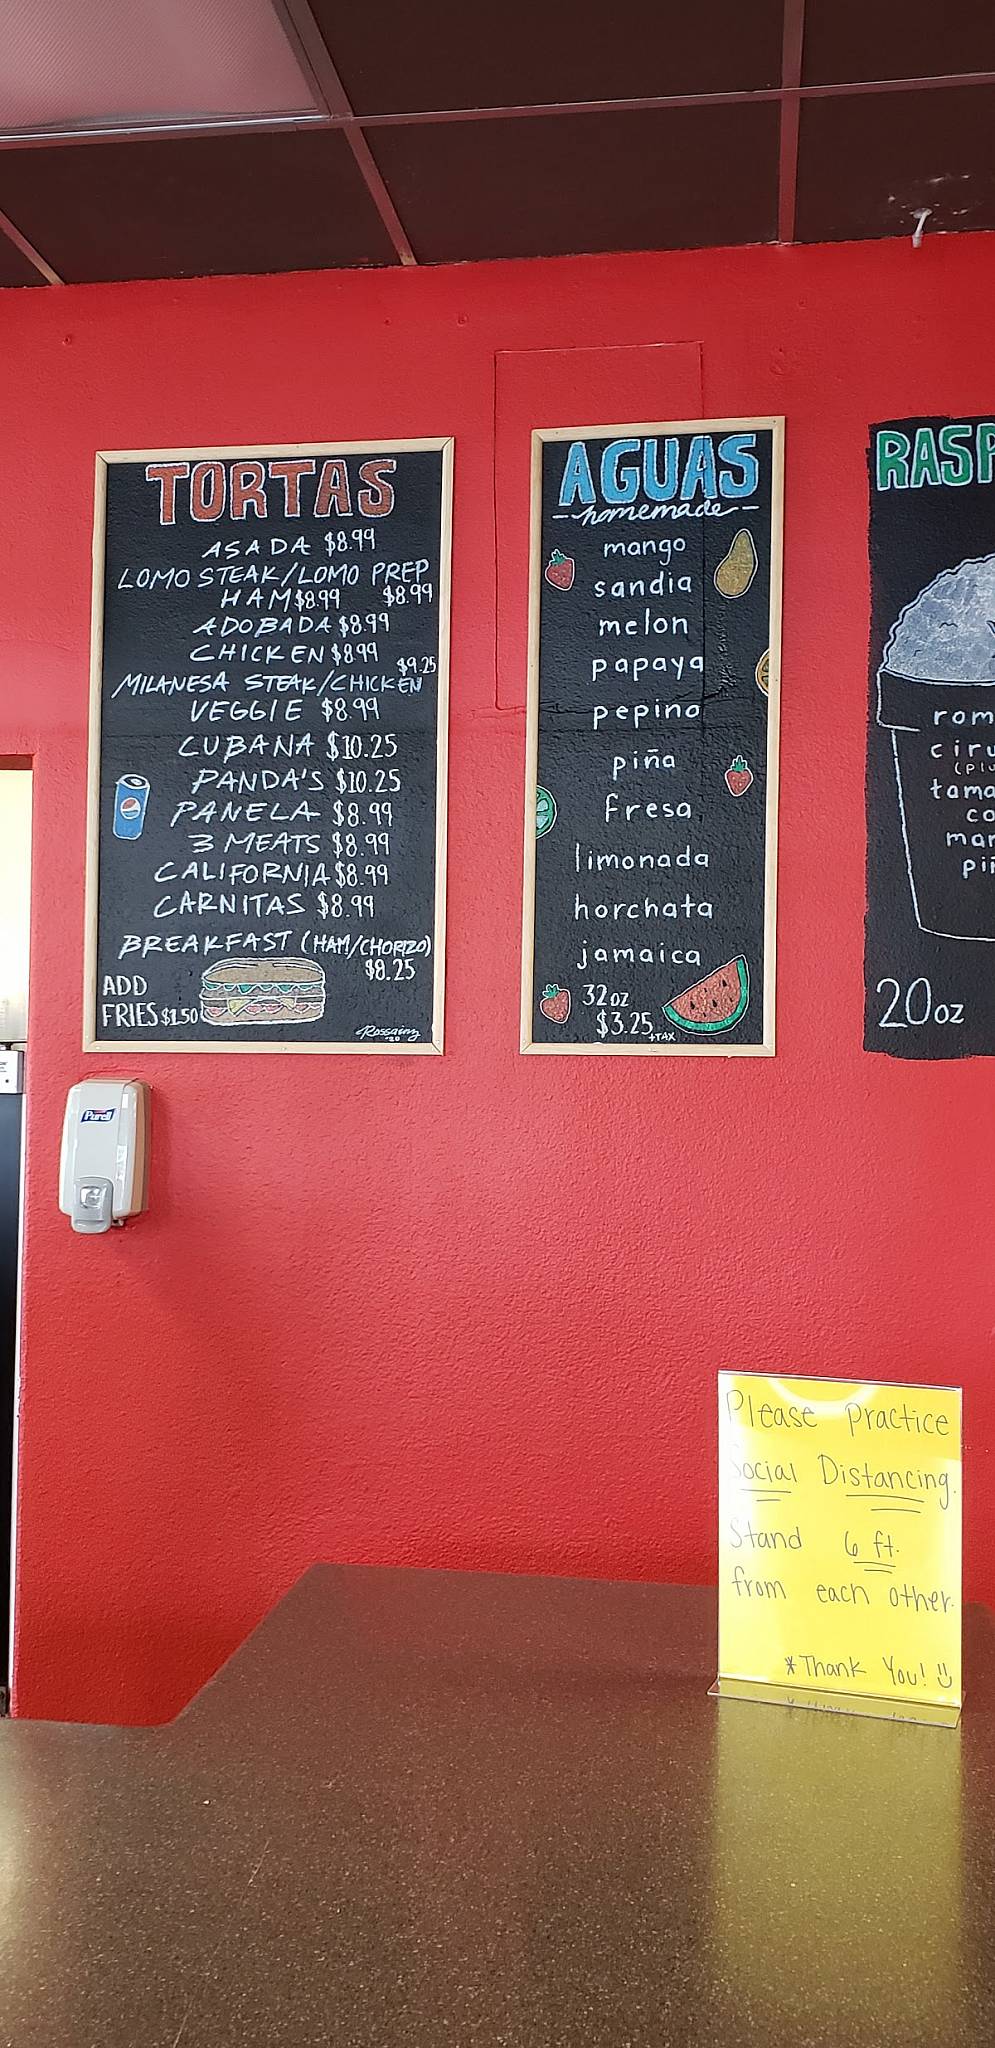 TORTAS
ASADA $8.99
LOMO STEAK/LOMO PREP
HAM $8.99 $8.99
ADOBADA $8.99
CHICKEN $8.99
$9.25
MILANESA STEAK/CHICKEN
VEGGIE $8.99
CUBANA $10.25
PANDA'S $10.25
PANELA $8.99
3 MEATS $8.99
CALIFORNIA $8.99
CARNITAS $8.99
BREAKFAST (HAM/CHORIZO)
$8.25
ADD
FRIES $1.50
AGUAS
-homemade-
mango
sandia
melon
papaya
pepino
piña
fresa
limonada
horchata
jamaica
32oz
$3.25
+TAX
RASP
rom
ciru
(plu
tama
co
mar
piñ
20oz
Purell
Please practice
Social Distancing.
Stand 6 ft.
from each other.
*Thank You!